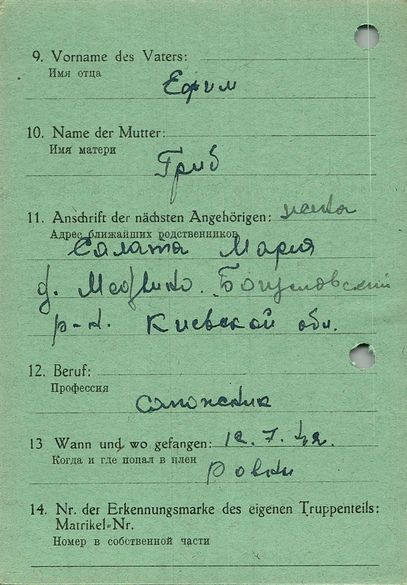 9. Vorname des Vaters:
Имя отца
Ефим
10. Name der Mutter:
Имя матери
Гриб
11. Anschrift der nächsten Angehörigen: жена
Адрес ближайших родственников
Салата Мария
д.
р-н. Киевской обл.
12. Beruf:
Профессия
сапожник
13 Wann und wo gefangen: 12.7.42.
Когда и где попал в плен
14. Nr. der Erkennungsmarke des eigenen Truppenteils:
Matrikel-Nr.
Номер в собственной части